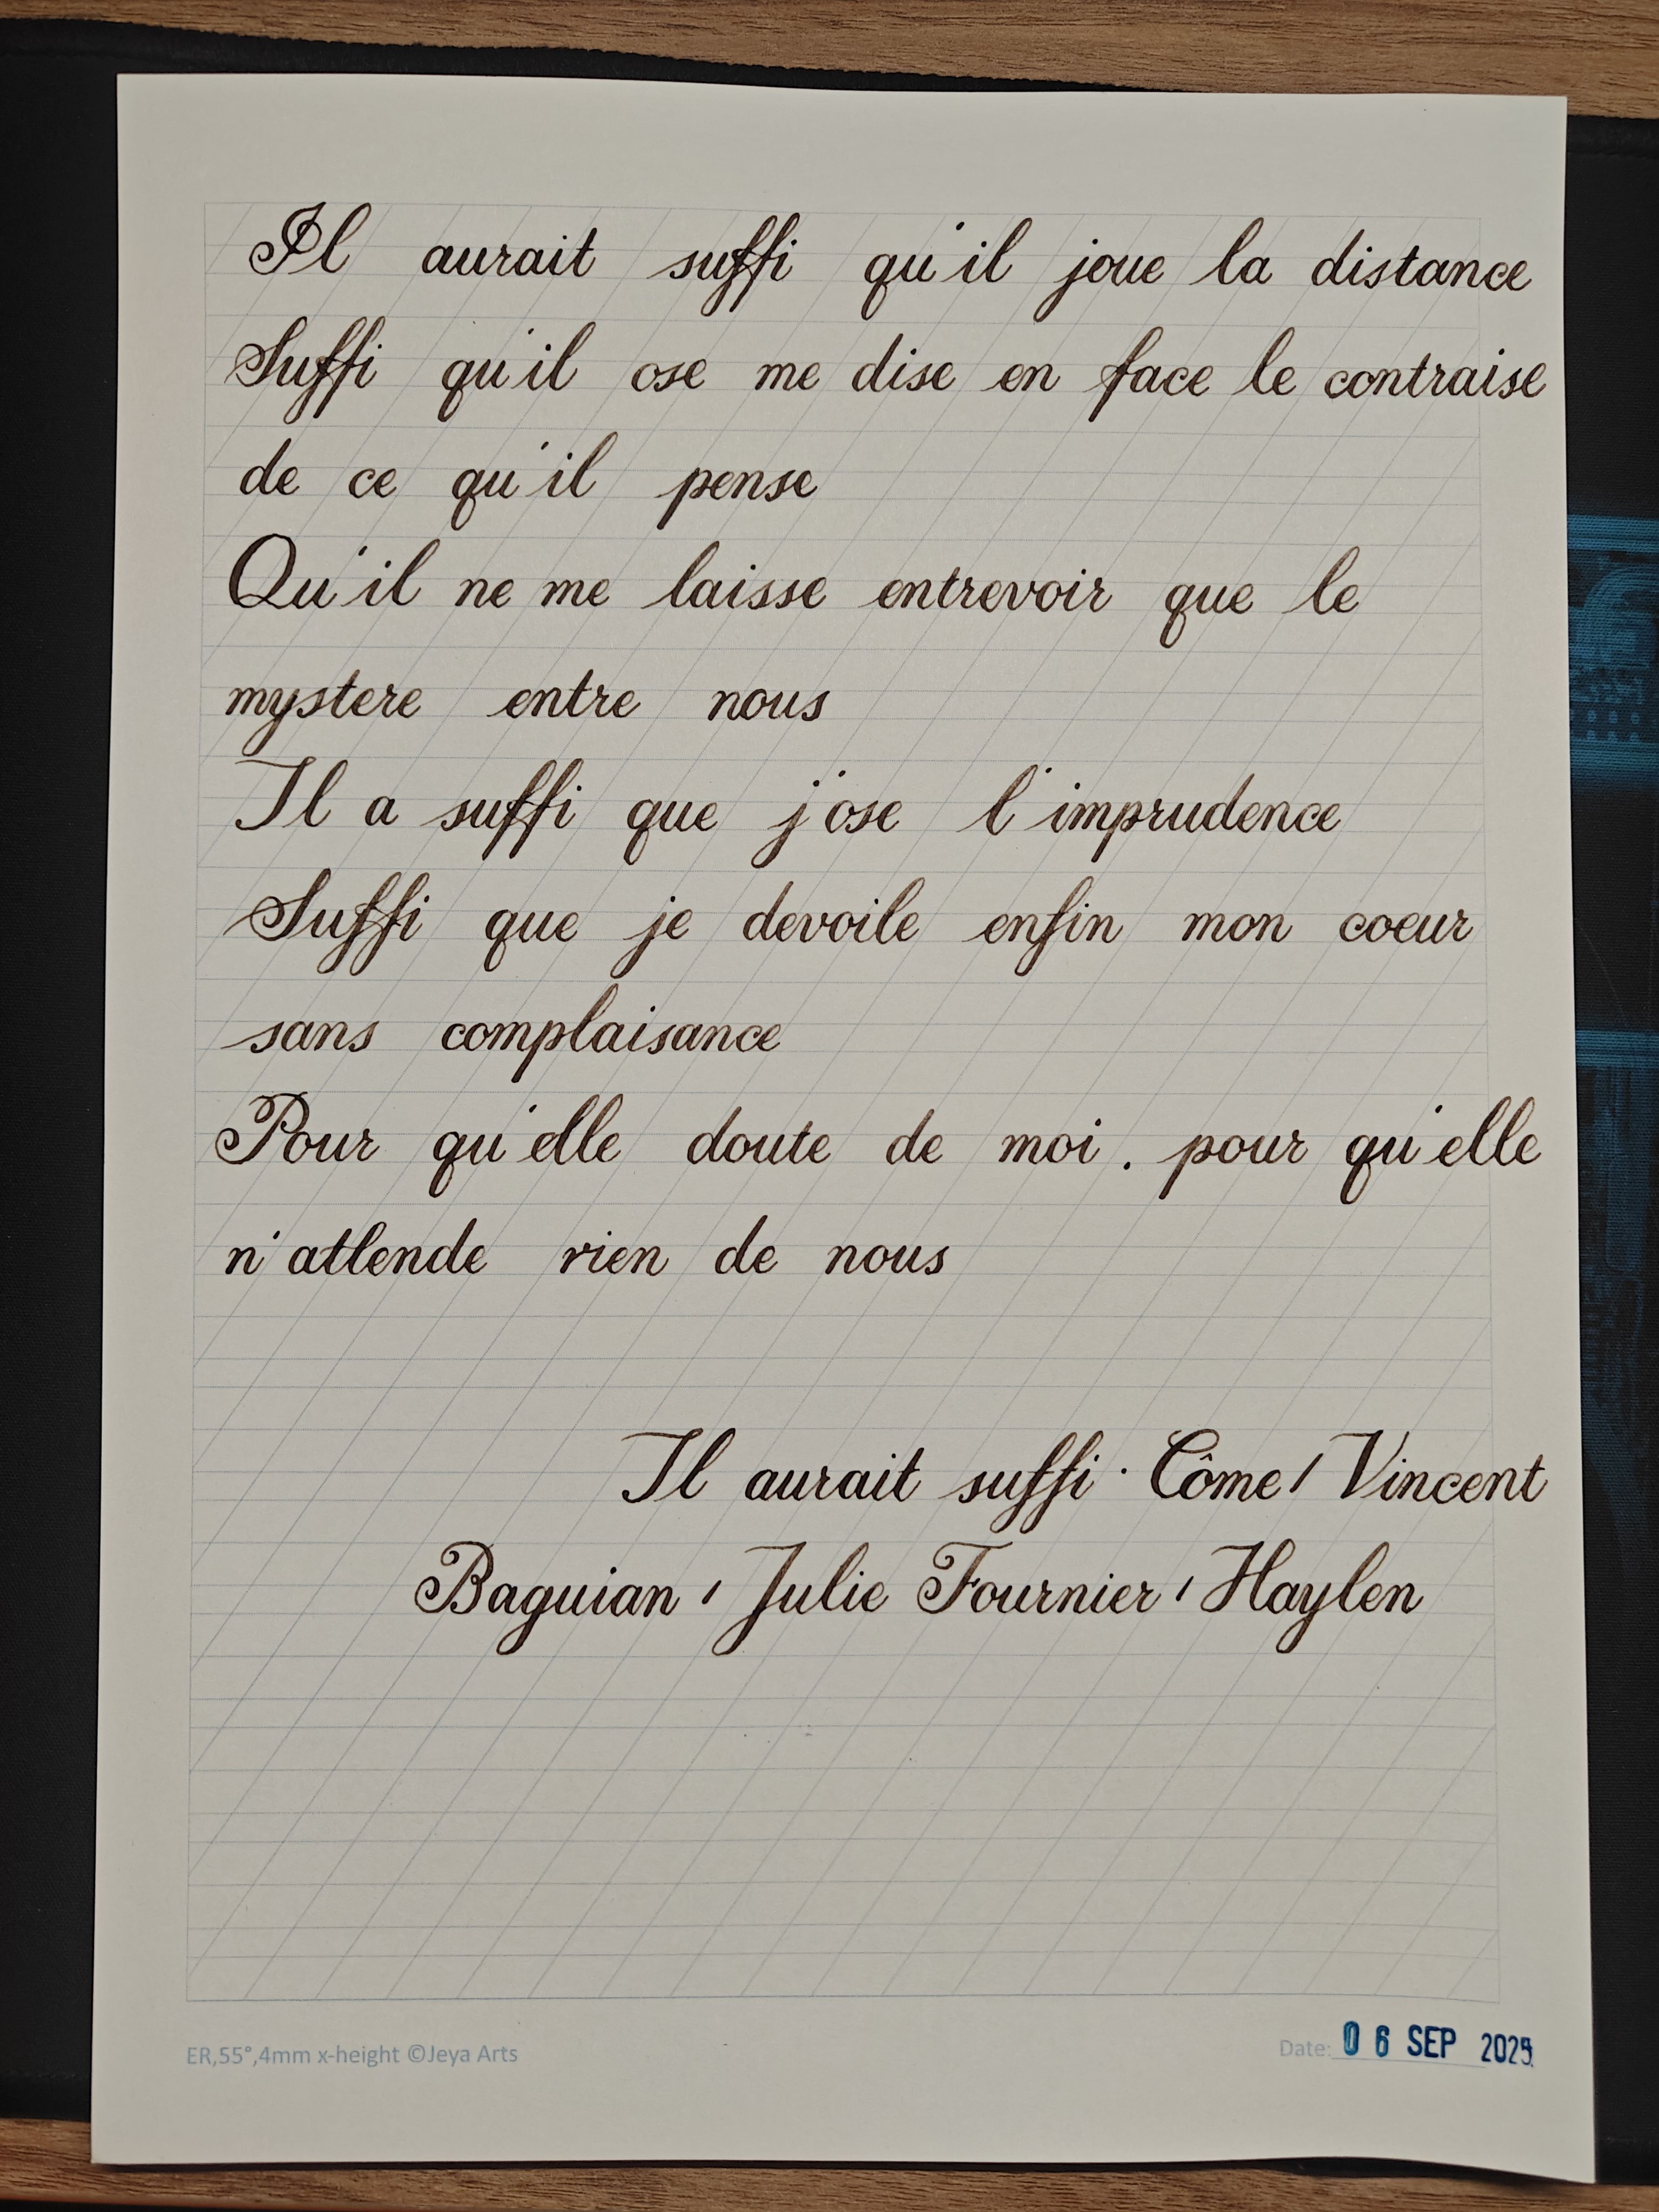 Il aurait suffi qu'il joue la distance
Suffi qu'il ose me dise en face le contraise
de ce qu'il pense
Qu'il ne me laisse entrevoir que le
mystere entre nous
Il a suffi que j'ose l'imprudence
Suffi que je devoile enfin mon coeur
sans complaisance
Pour qu'elle doute de moi. pour qu'elle
n'attende rien de nous
Il aurait suffi · Côme / Vincent
Baguian / Julie Fournier / Haylen
ER,55°,4mm x-height ©Jeya Arts
Date: 06 SEP 2025